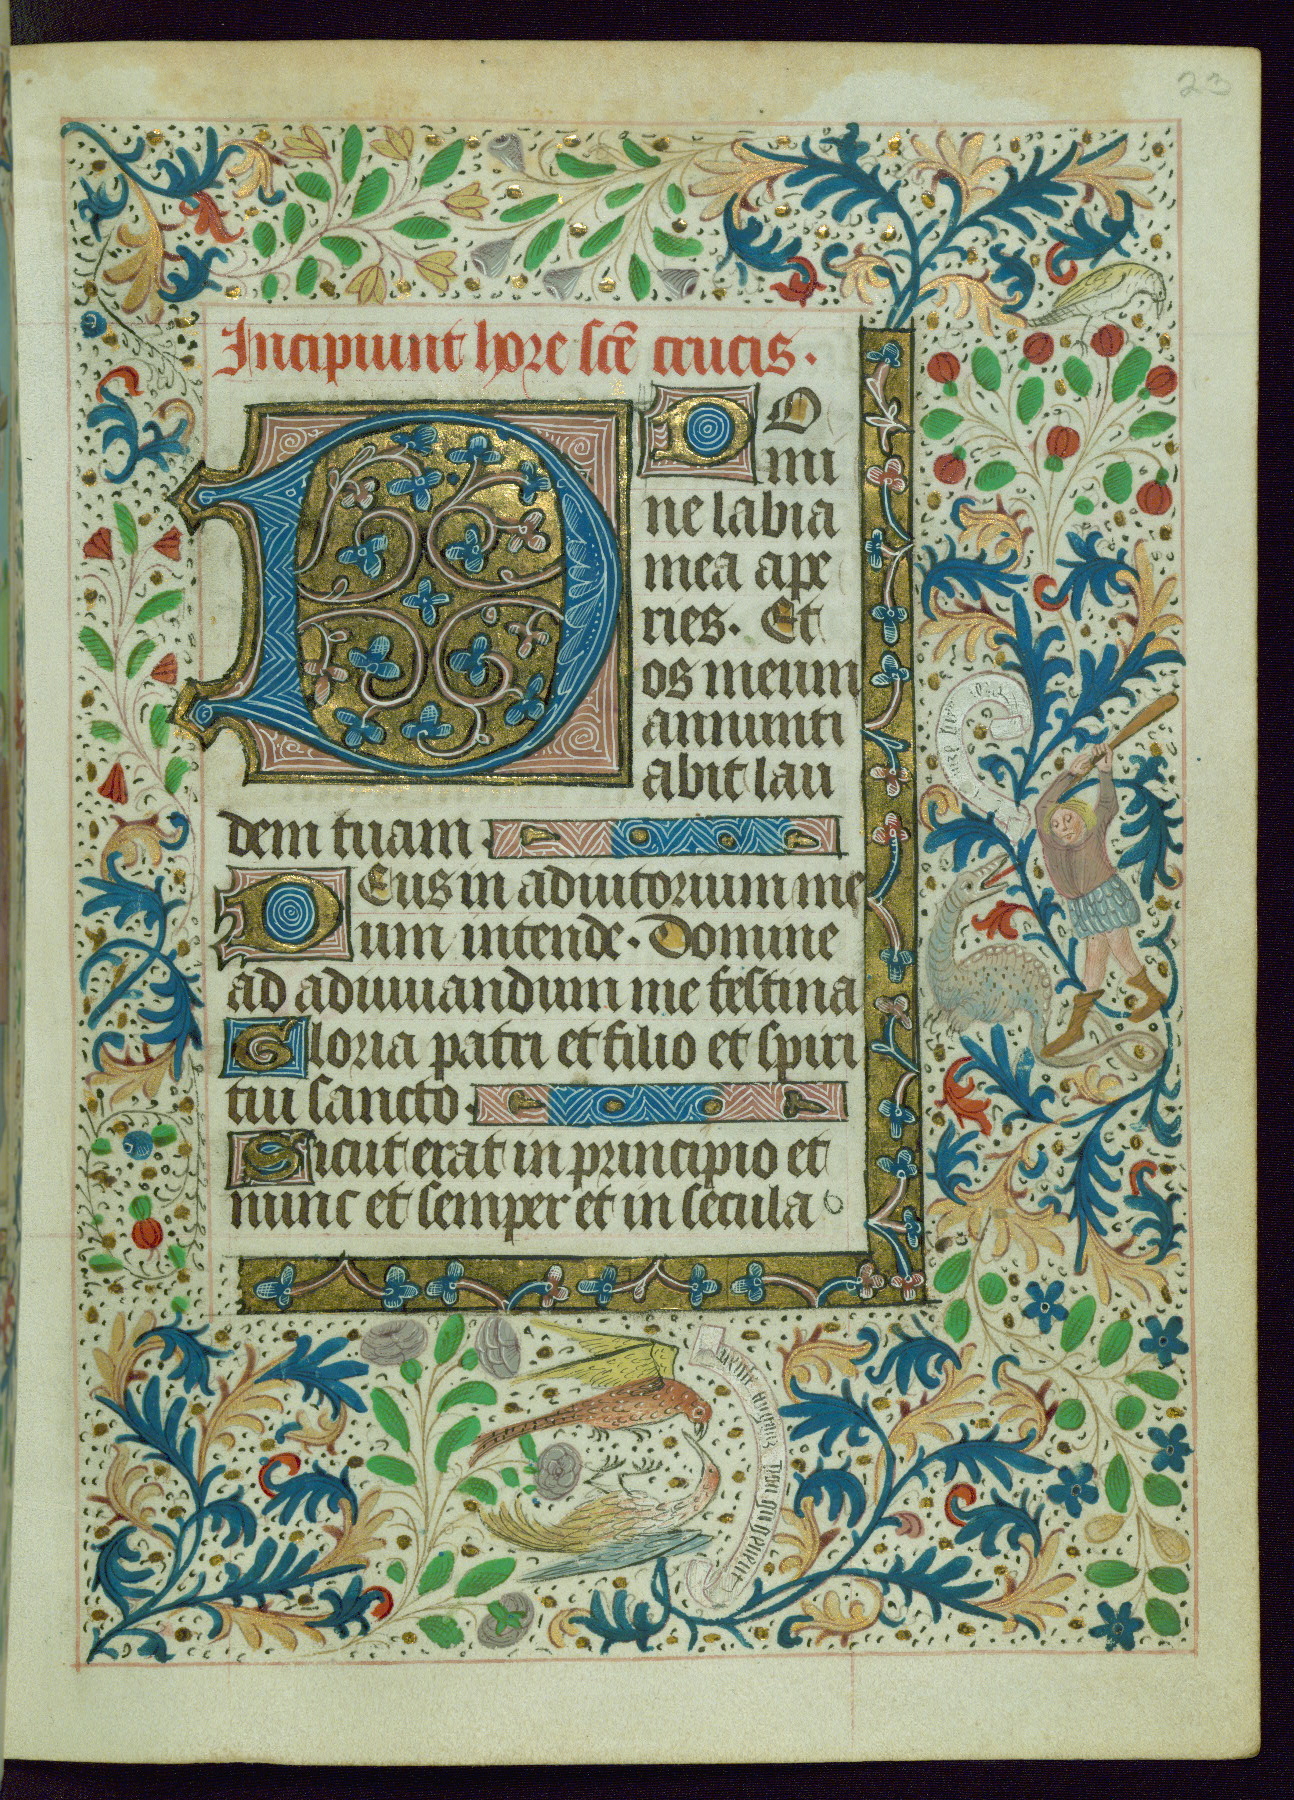 23
Incipiunt hore scē crucis.
DO
mi
ne labia
mea ape
ries. Et
os meum
annunti
abit lau
dem tuam.
DEus in adiutorium me
um intende. Domine
ad adiuuandum me festina
Gloria patri et filio et spiri
tui sancto.
Sicut erat in principio et
nunc et semper et in secula